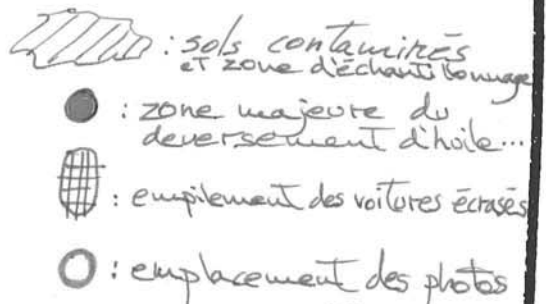 : sols contaminés
et zone d'échantillonnage
: zone majeure du
deversement d'huile...
: empilement des voitures écrasés
: emplacement des photos